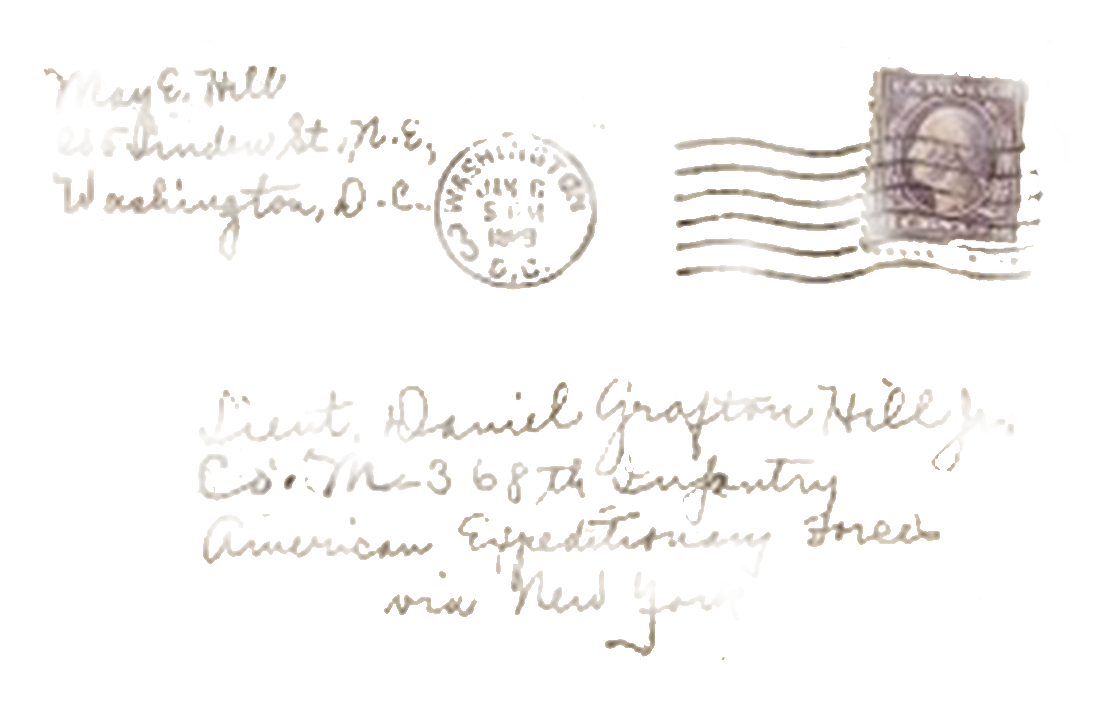 May E. Hill
Linden St., N.E.,
Washington, D.C.
WASHINGTON
JAN 6
5 PM
1919
3 D.C.
Lieut. Daniel Grafton Hill Jr.
Co. M - 368th Infantry
American Expeditionary Forces
via New York